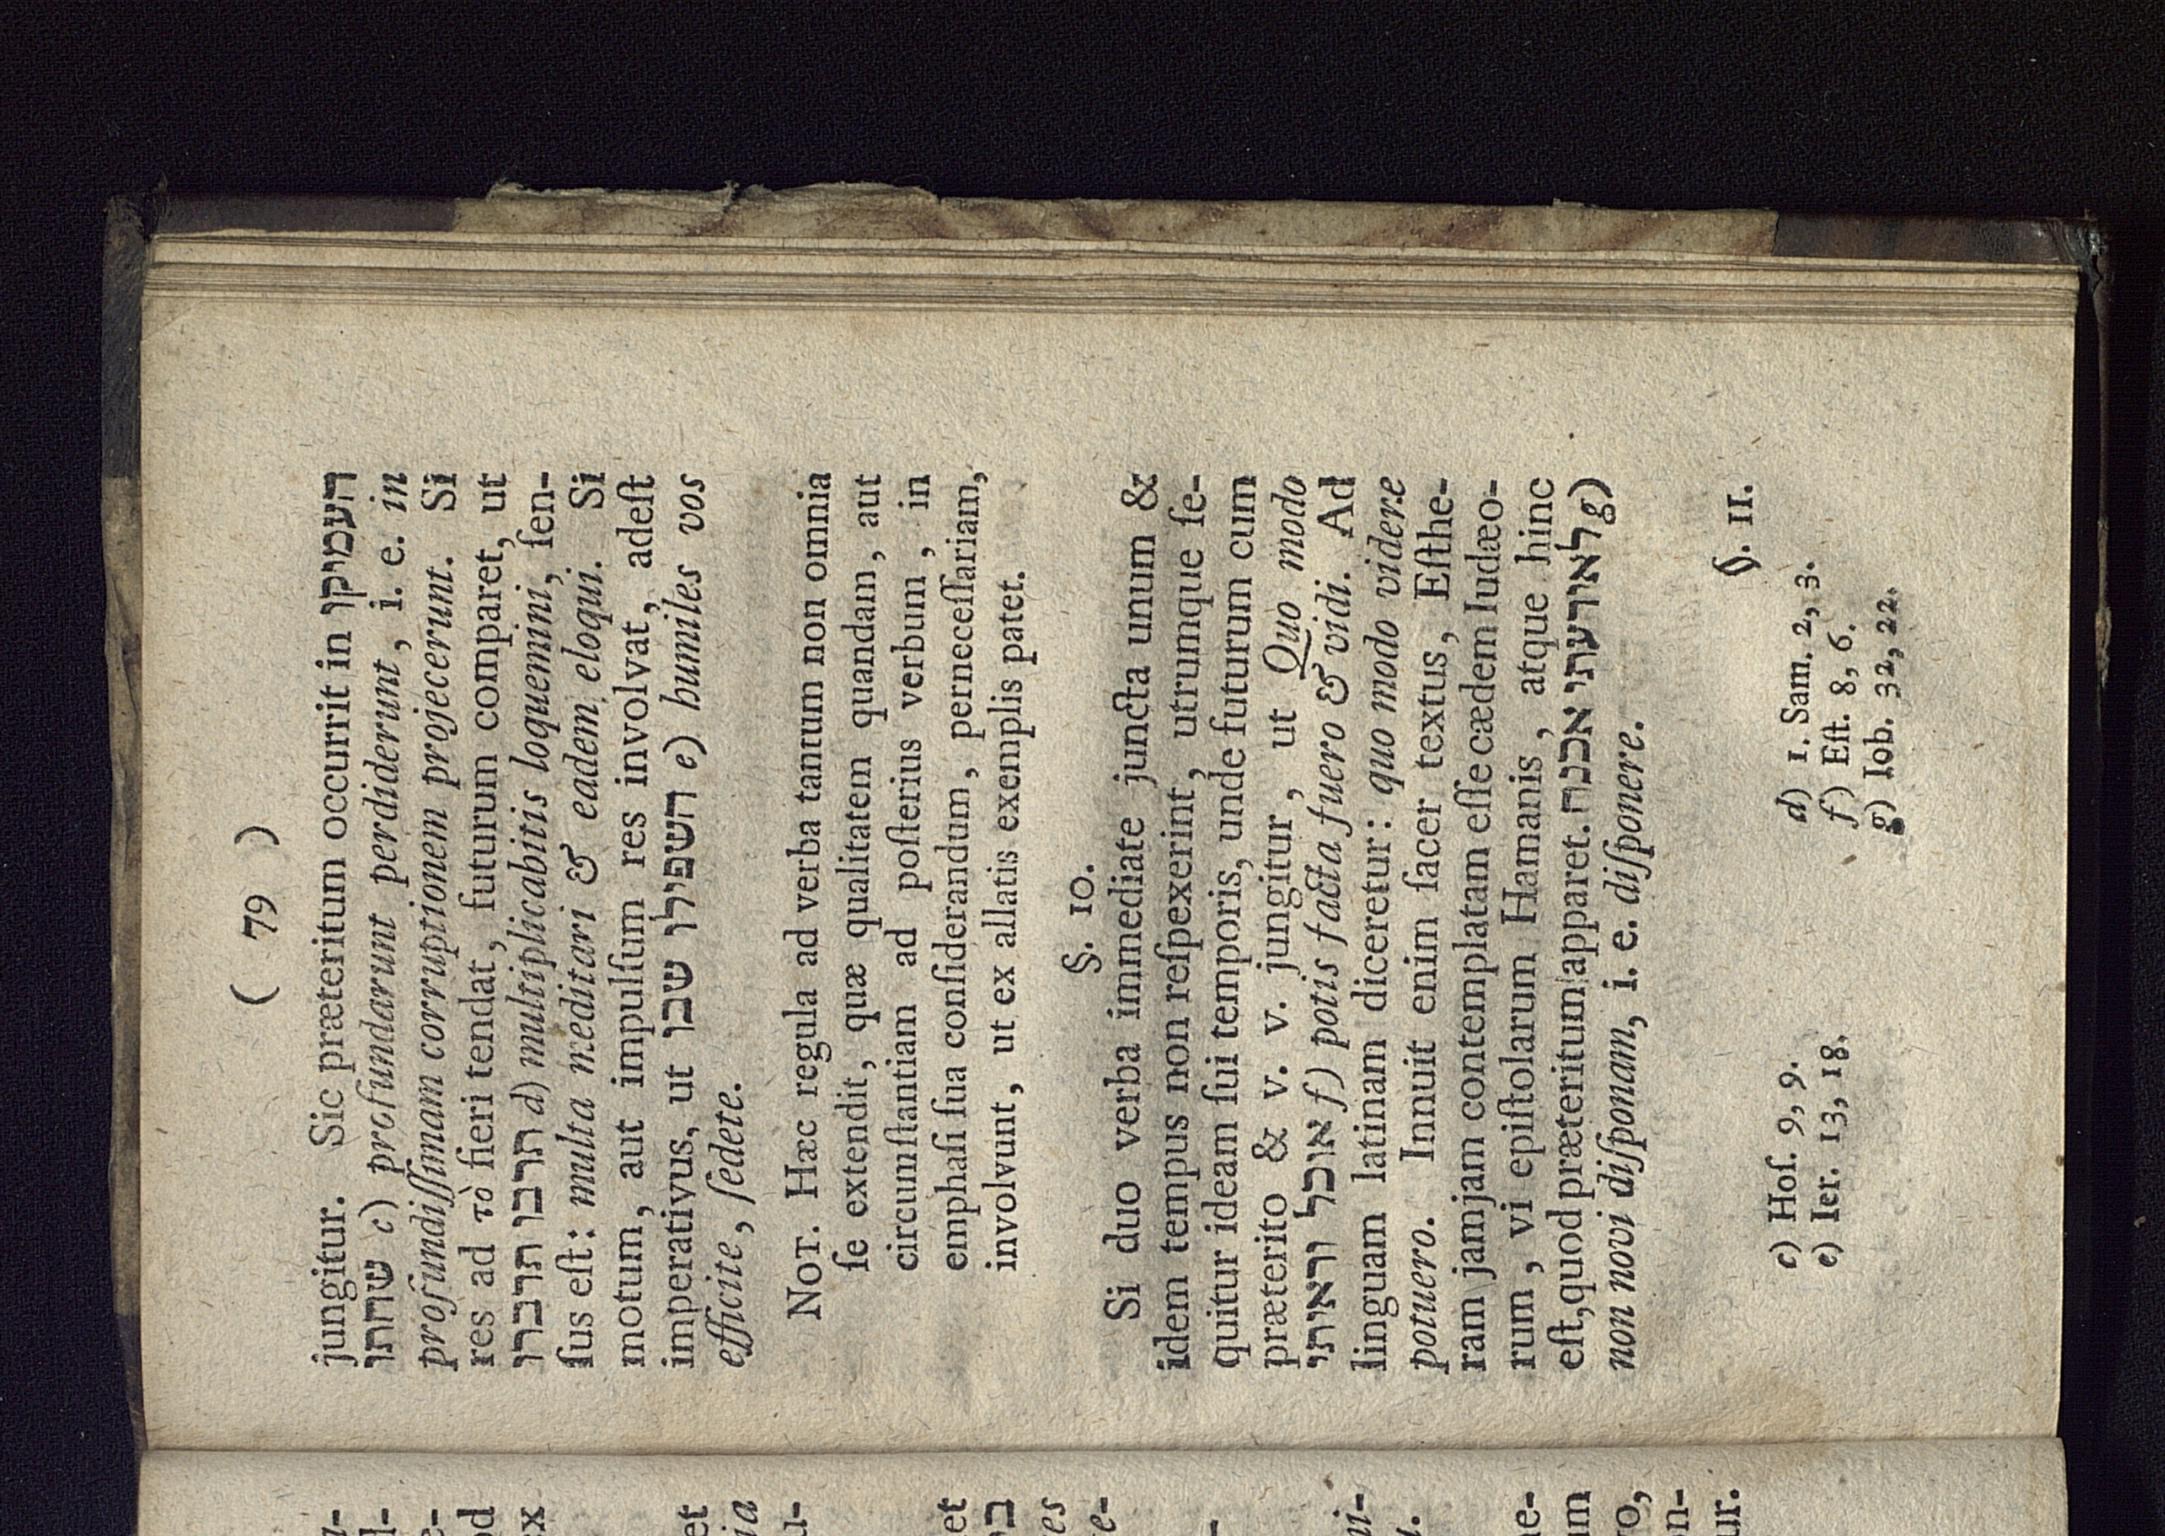 ( 79 )
jungitur. Sic præteritum occurrit in העמיקו
שחתו c) profundarunt perdiderunt, i. e. in
profundiſſimam corruptionem projecerunt. Si
res ad τὸ fieri tendat, futurum comparet, ut
תרבו תדברו d) multiplicabitis loquemini, ſen-
ſus eſt: multa meditari & eadem eloqui. Si
motum, aut impulſum res involvat, adeſt
imperativus, ut השפילו שבו e) humiles vos
efficite, ſedete.
NOT. Hæc regula ad verba tantum non omnia
ſe extendit, quæ qualitatem quandam, aut
circumſtantiam ad poſterius verbum, in
emphaſi ſua conſiderandum, perneceſſariam,
involvunt, ut ex allatis exemplis patet.
§. 10.
Si duo verba immediate juncta unum &
idem tempus non reſpexerint, utrumque ſe-
quitur ideam ſui temporis, unde futurum cum
præterito & v. v. jungitur, ut Quo modo
אוכל וראיתי f) potis facta fuero & vidi. Ad
linguam latinam diceretur: quo modo videre
potuero. Innuit enim ſacer textus, Eſthe-
ram jamjam contemplatam eſſe cædem Iudæo-
rum, vi epiſtolarum Hamanis, atque hinc
eſt, quod præteritum apparet. לאידעתי אכנה g)
non novi diſponam, i. e. diſponere.
§. 11.
c) Hoſ. 9, 9. d) 1. Sam. 2, 3.
e) Ier. 13, 18. f) Eſt. 8, 6.
g) Iob. 32, 22.